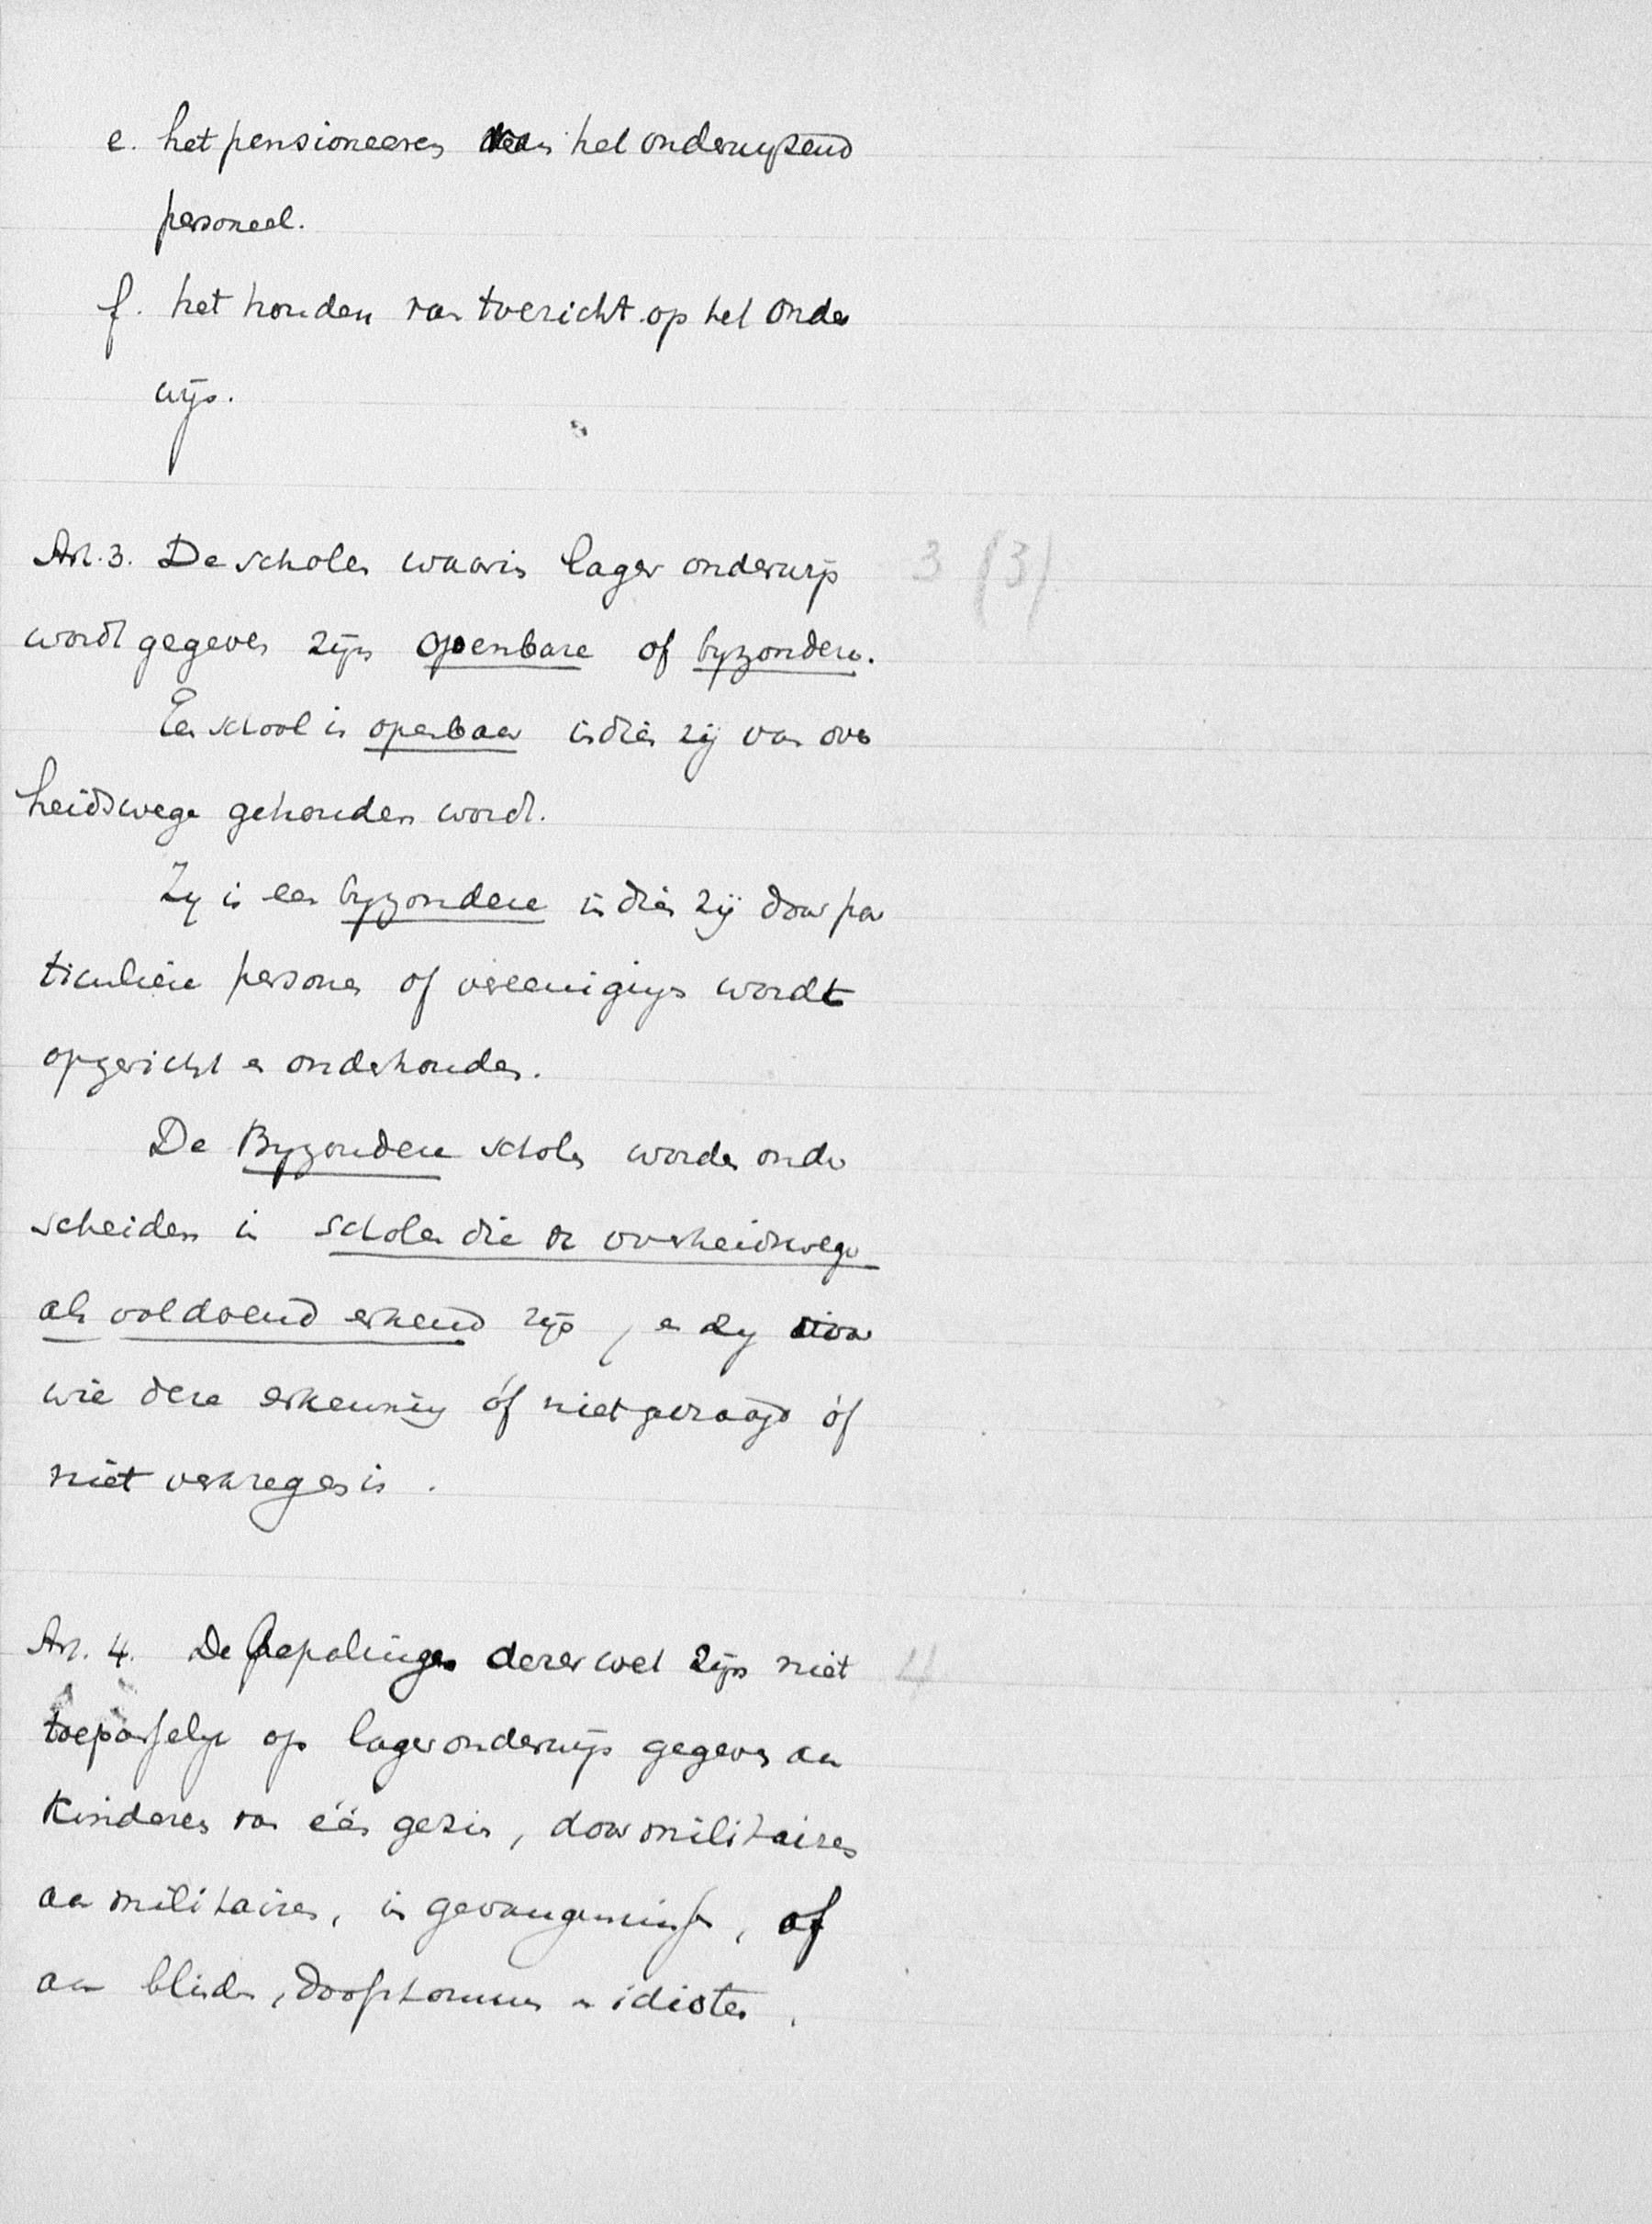 e. het pensioneeren van het onderwyzend
personeel.
f. het houden van toezicht op het onder
wijs.
Art. 3. De scholen waarin lager onderwijs 3 (3)
wordt gegeven zijn openbare of byzondere.
Een school is openbaar indien zij van over
heidswege gehouden wordt.
Zy is een byzondere indien zij door par
ticuliere personen of vereenigingen wordt
opgericht en onderhouden.
De Byzondere scholen worden onder
scheiden in scholen die van overheidswege
als voldoend erkend zijn, en zy voor
wie deze erkenning óf niet gevraagd óf
niet verkregen is.
Art. 4. De bepalingen dezer wet zijn niet 4
toepasselyk op lager onderwijs gegeven aan
Kinderen van één gezin, door militairen
aan militairen, in gevangenissen, of
aan blinden, doofstommen en idioten.